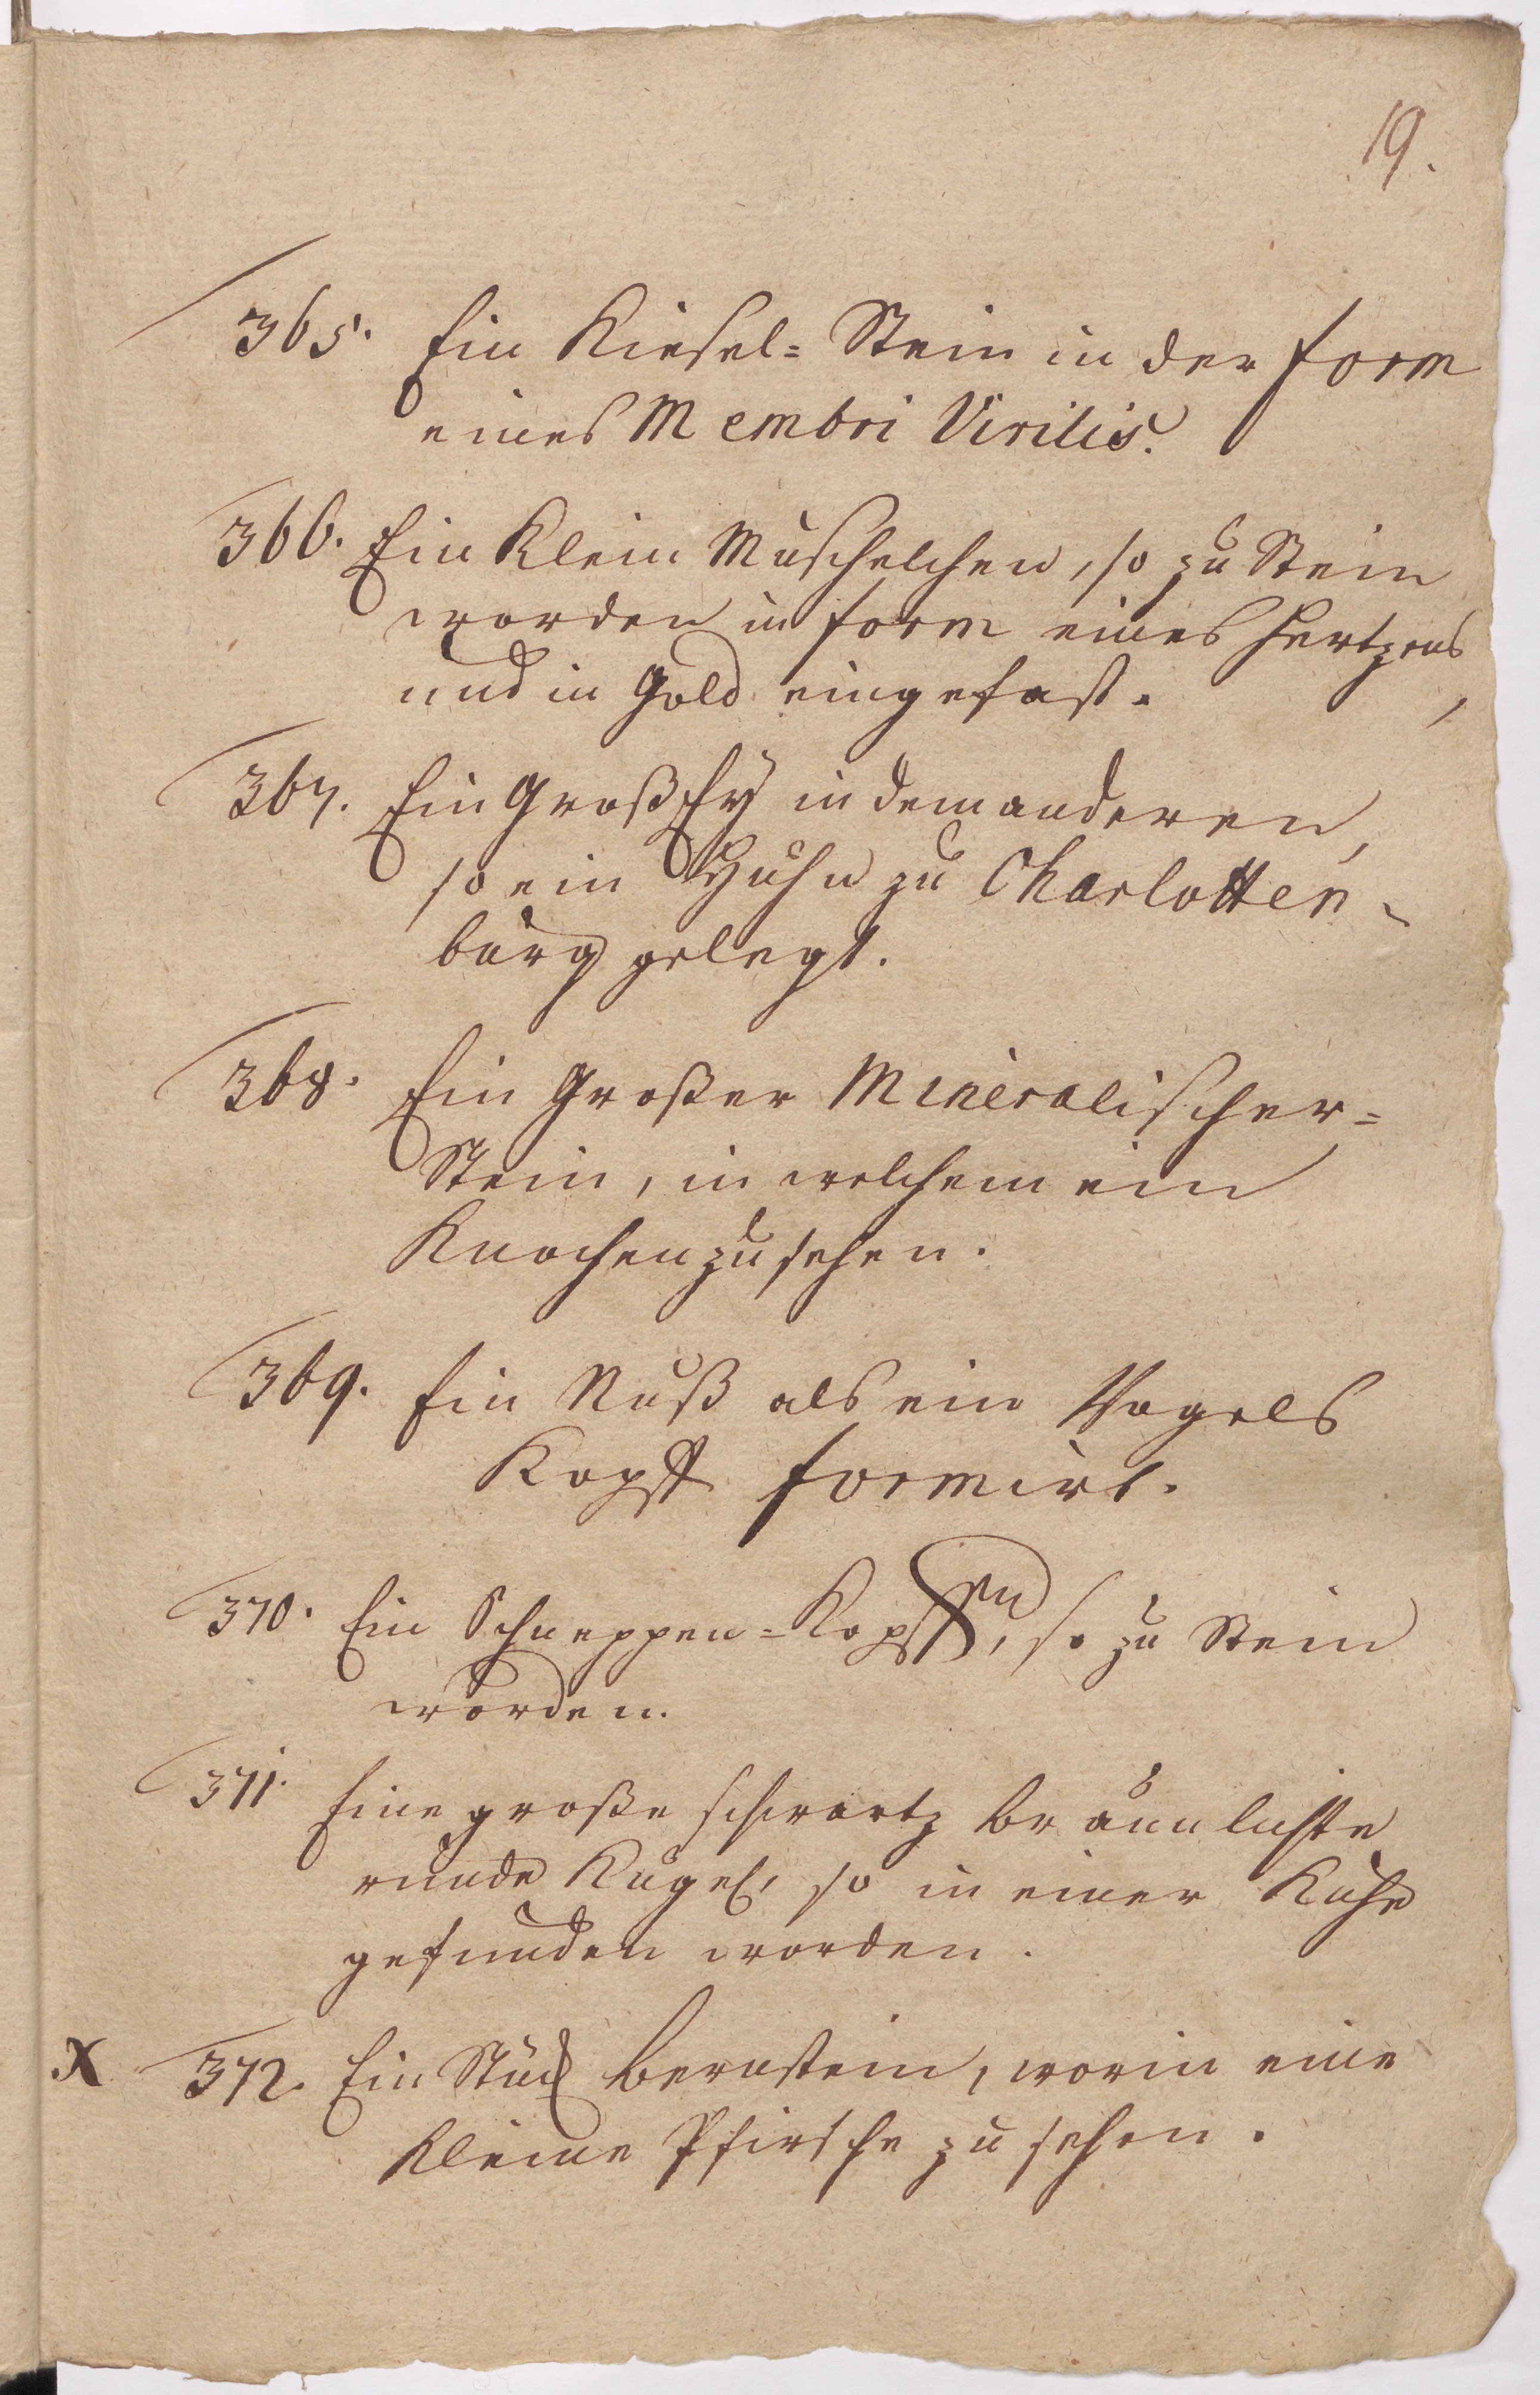 19.
365. Ein Kiesel= Stein in der form
eines Membri Virilis.
366. Ein Klein Muschelchen, so zu Stein
worden in form eines Hertzens
und in Gold eingefast.
367. Ein Groß Ey in dem anderen,
so ein Huhn zu Charlotten-
burg gelegt.
368. Ein Großer Mineralischer=
Stein, in welchem ein
Knochen zu sehen.
369. Ein Nuß als ein Vogels
Kopff formirt.
370. Ein Schneppen=Kopff, so zu Stein
worden.
371. Eine große schwartz bräunlichte
runde Kugel, so in einer Kuhe
gefunden worden.
X 372. Ein Stück bernstein, worin eine
Kleine Pfirsche zu sehen.